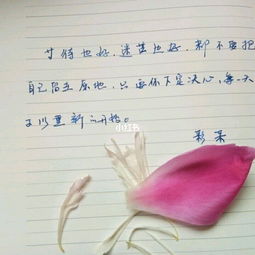 甘储也好,迷茫也好,都不要把
自己留在原地,只要你下定决心,每一天
可以重新开始。
彩英
小红书